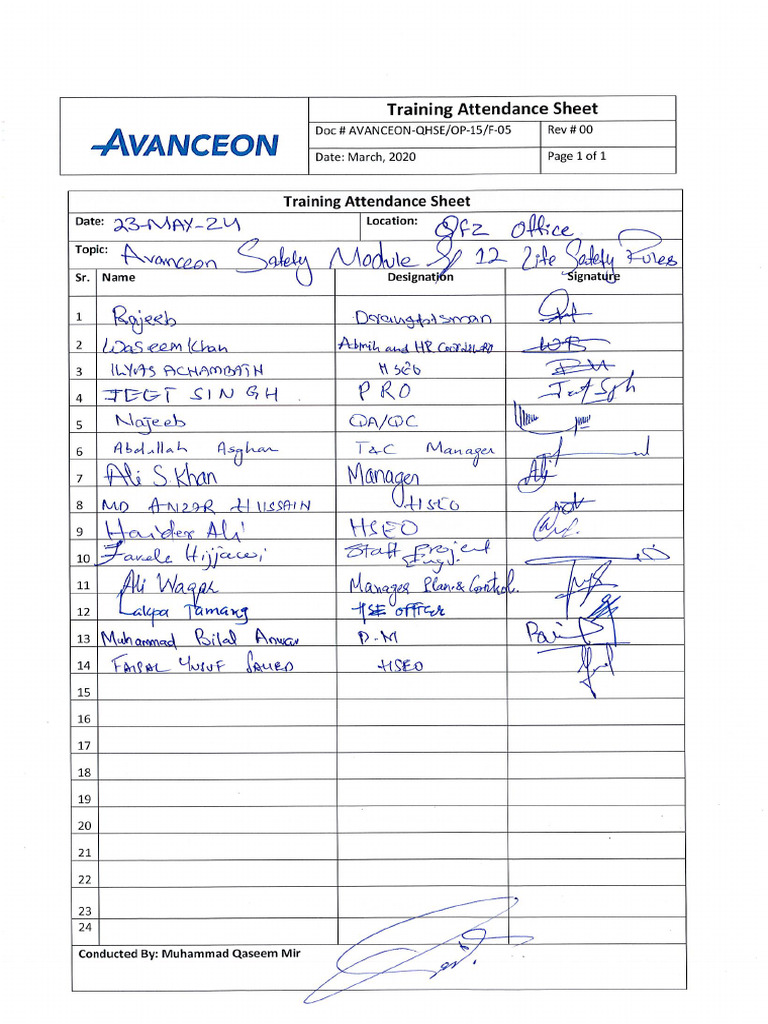 AVANCEON
Training Attendance Sheet
Doc # AVANCEON-QHSE/OP-15/F-05 Rev # 00
Date: March, 2020 Page 1 of 1
Training Attendance Sheet
Date: 23-MAY-24 Location: QFZ Office
Topic: Avanceon Safety Module 12 Life Safety Rules
Sr. Name Designation Signature
1 Rajeeb
2 Waseem Khan Admin and HR Coordinator
3 ILYAS ACHAMBATH HSEO
4 JEET SINGH PRO Jeet Sgh
5 Najeeb QA/QC
6 Abdullah Asghar T&C Manager
7 Ali S. Khan Manager Ali
8 MD ANZAR HUSSAIN HSEO
9 Haider Ali HSEO
10 Hijjawi Staff Project Engr.
11 Ali Waqar Manager Plan. & Control.
12 Lakpa Tamang HSE OFFICER
13 Muhammad Bilal Anwar P.M
14 FAISAL YUSUF SAYED HSEO
15
16
17
18
19
20
21
22
23
24
Conducted By: Muhammad Qaseem Mir